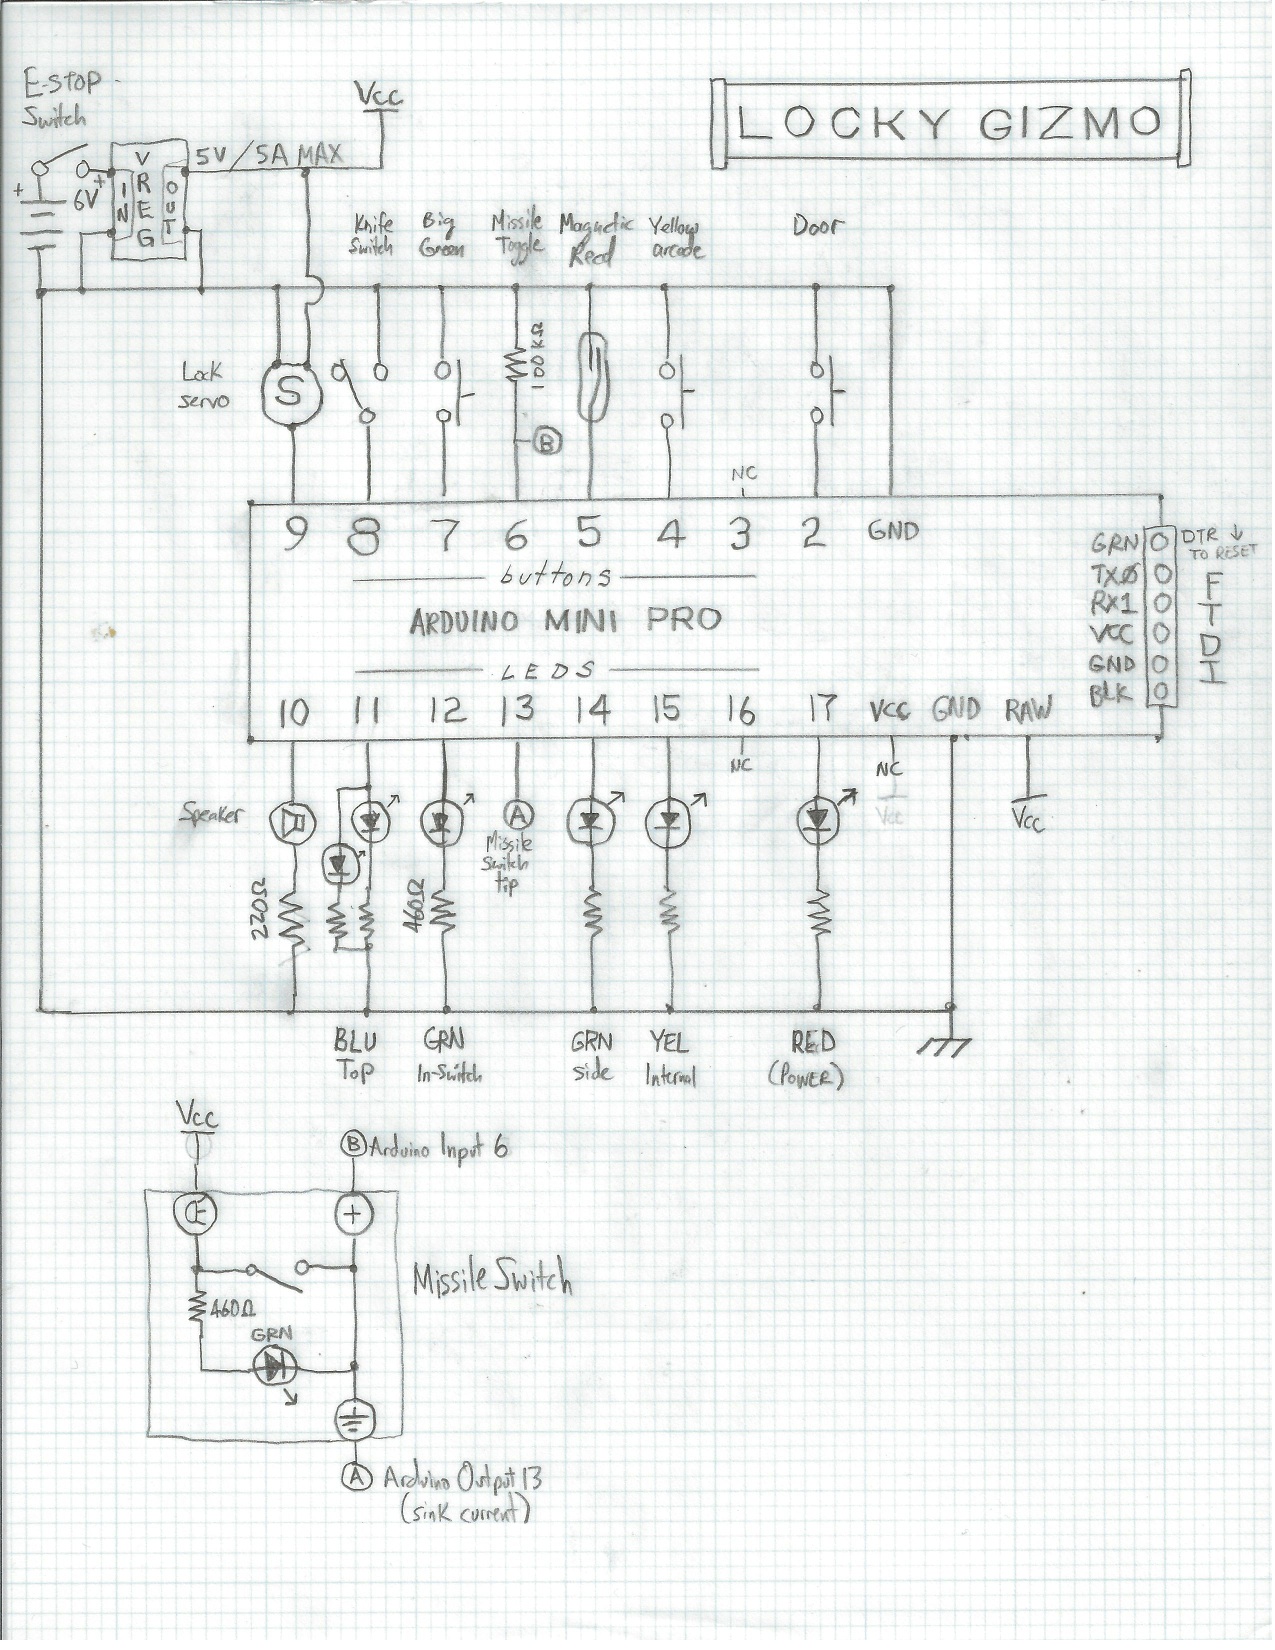 E-STOP
Switch
Vcc
LOCKY GIZMO
5V/5A MAX
+
6V
+
IN
VREG
OUT
Knife
Switch
Big
Green
Missile
Toggle
Magnetic
Reed
Yellow
arcade
Door
Lock
servo
S
100KΩ
B
NC
9 8 7 6 5 4 3 2 GND
buttons
ARDUINO MINI PRO
LEDS
10 11 12 13 14 15 16 17 VCC GND RAW
GRN
TXØ
RX1
VCC
GND
BLK
DTR ↓
TO RESET
FTDI
NC
NC
Vcc
Vcc
Speaker
A
Missile
Switch
tip
220Ω
460Ω
BLU
Top
GRN
In-Switch
GRN
side
YEL
Internal
RED
(POWER)
Vcc
B Arduino Input 6
+
Missile Switch
460Ω
GRN
A Arduino Output 13
(sink current)